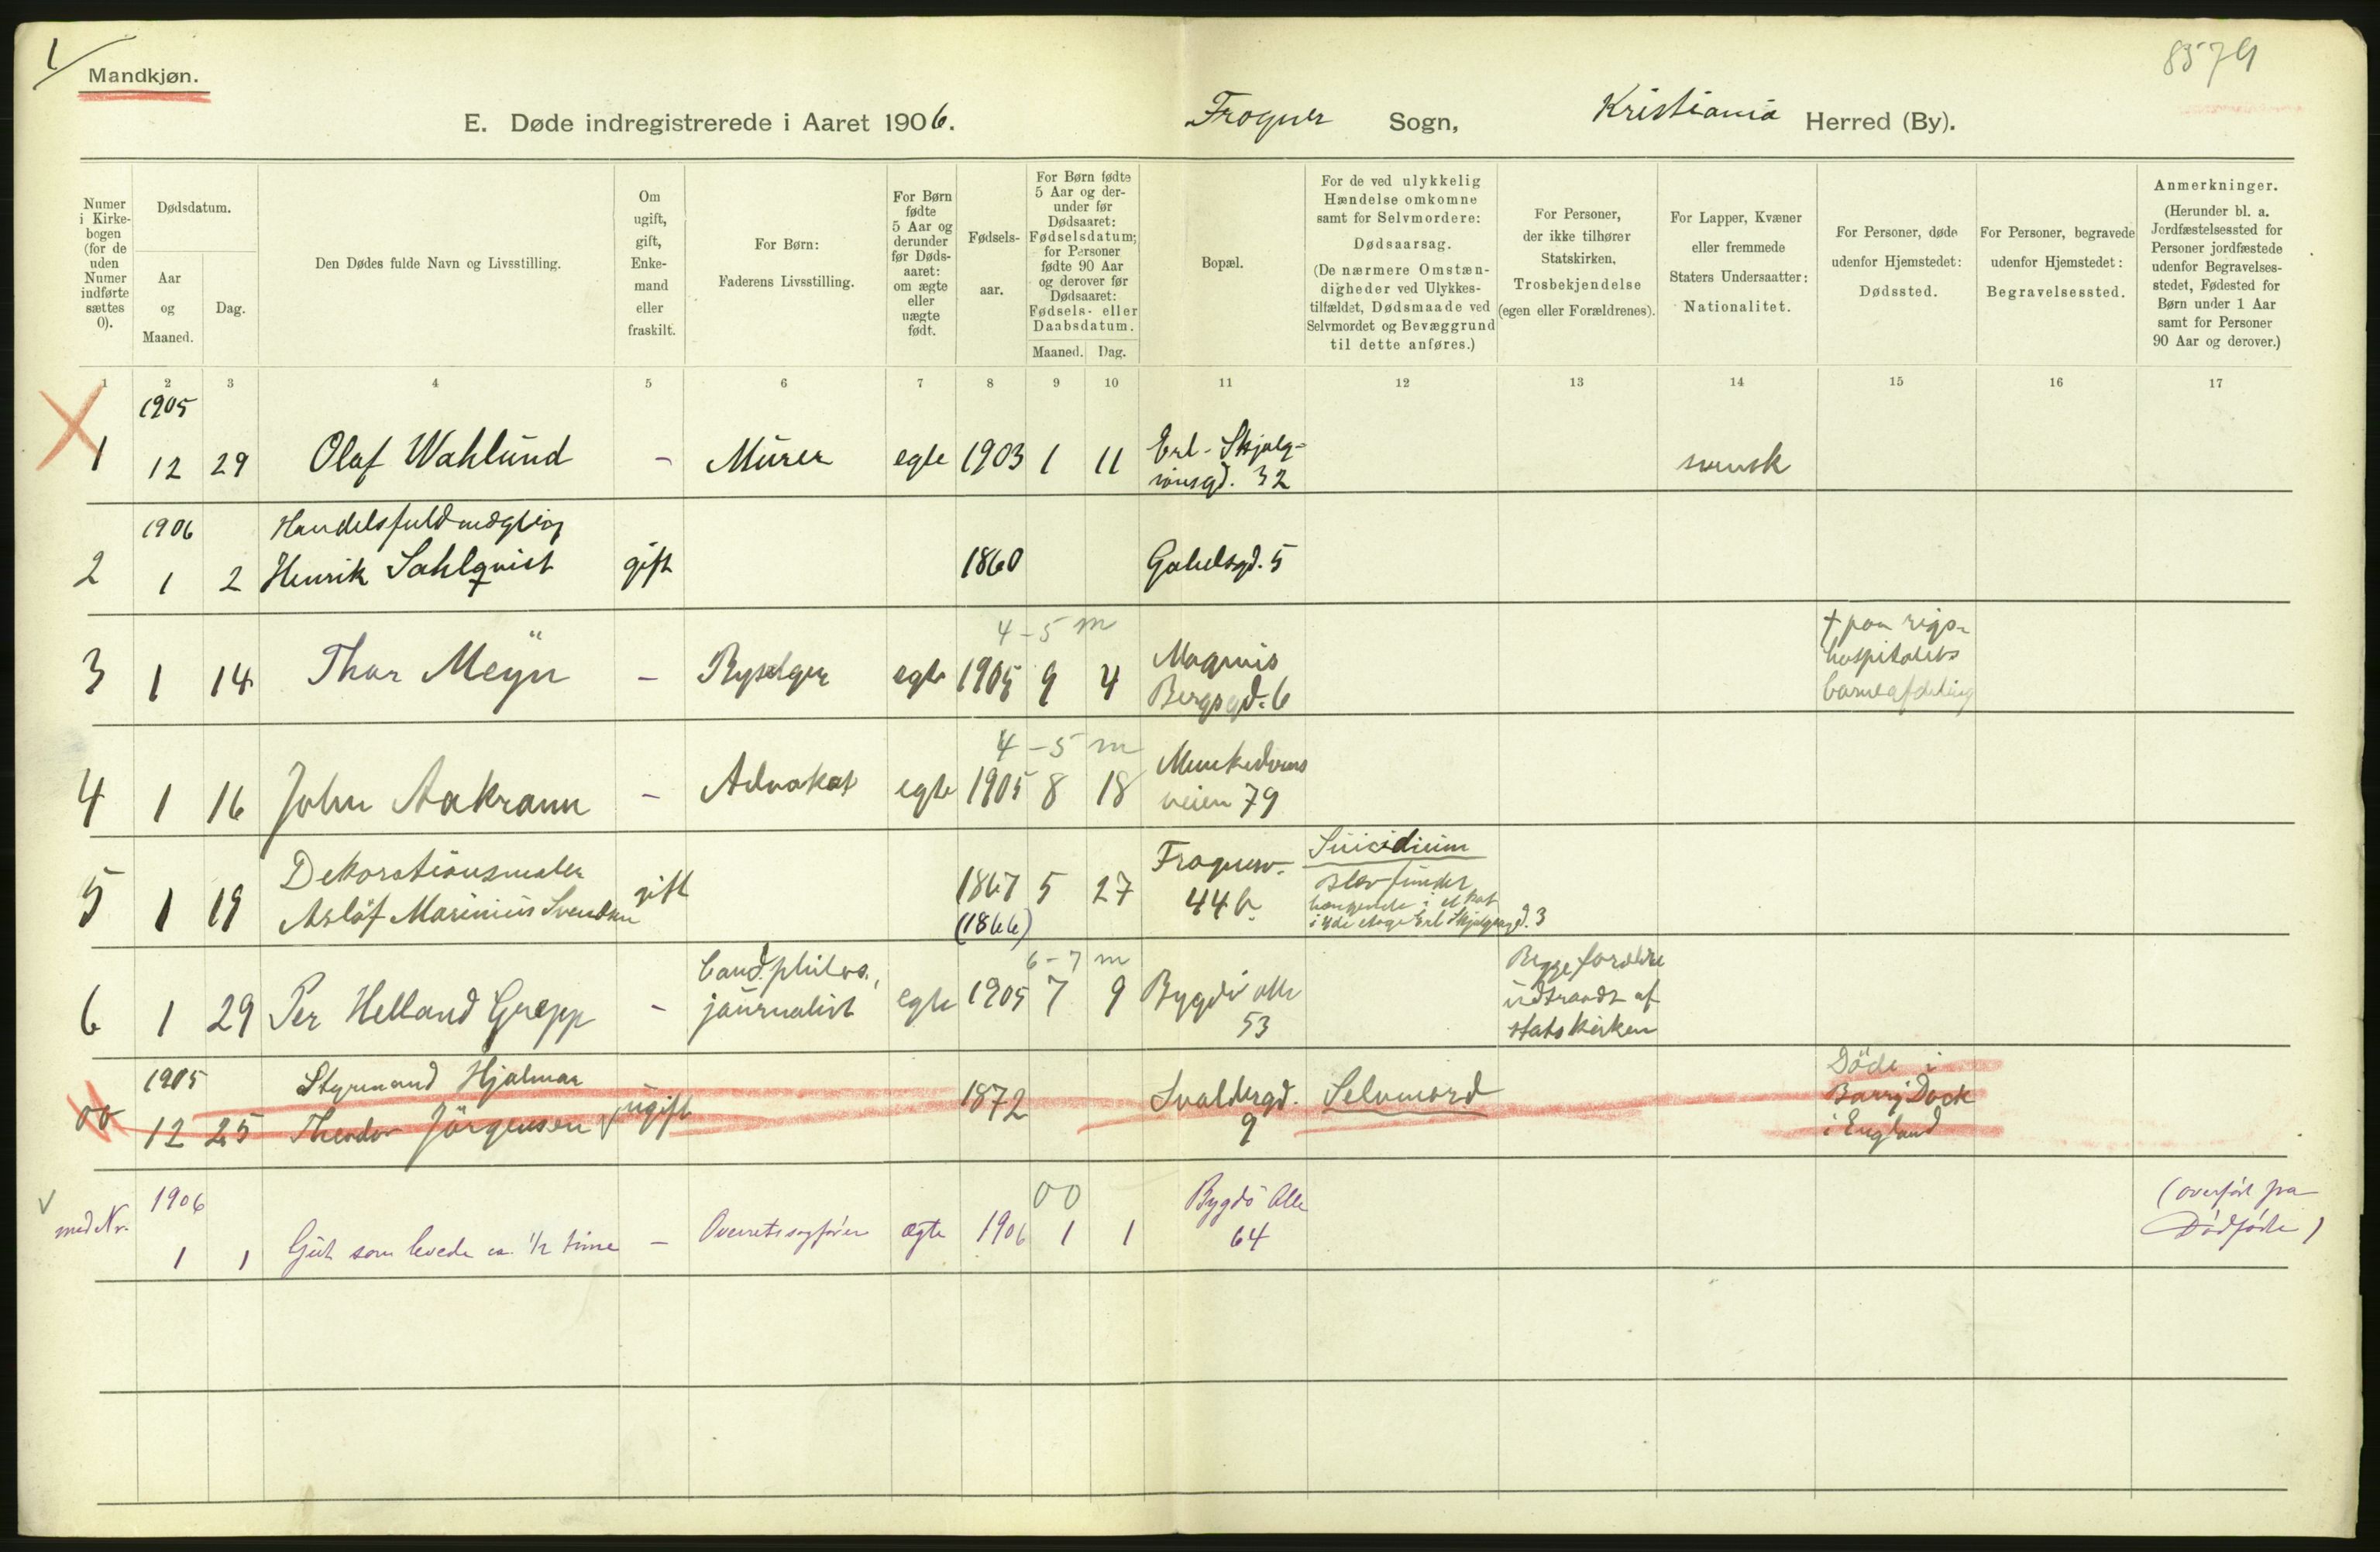 1
Mandkjøn.
8579
E. Døde indregistrerede i Aaret 1906. Frogner Sogn, Kristiania Herred (By).
Numer i Kirkebogen (for de uden Numer indførte sættes 0).
Dødsdatum.
Aar og Maaned.
Dag.
Den Dødes fulde Navn og Livsstilling.
Om ugift, gift, Enkemand eller fraskilt.
For Børn: Faderens Livsstilling.
For Børn fødte 5 Aar og derunder før Dødsaaret: om ægte eller uægte født.
Fødselsaar.
For Børn fødte 5 Aar og derunder før Dødsaaret: Fødselsdatum; for Personer fødte 90 Aar og derover før Dødsaaret: Fødsels- eller Daabsdatum.
Maaned. Dag.
Bopæl.
For de ved ulykkelig Hændelse omkomne samt for Selvmordere: Dødsaarsag. (De nærmere Omstændigheder ved Ulykkestilfældet, Dødsmaade ved Selvmordet og Bevæggrund til dette anføres.)
For Personer, der ikke tilhører Statskirken, Trosbekjendelse (egen eller Forældrenes).
For Lapper, Kvæner eller fremmede Staters Undersaatter: Nationalitet.
For Personer, døde udenfor Hjemstedet: Dødssted.
For Personer, begravede udenfor Hjemstedet: Begravelsessted.
Anmerkninger. (Herunder bl. a. Jordfæstelsessted for Personer jordfæstede udenfor Begravelsesstedet, Fødested for Børn under 1 Aar samt for Personer 90 Aar og derover.)
1 2 3 4 5 6 7 8 9 10 11 12 13 14 15 16 17
1905
1 12 29 Olaf Wahlund - Murer egte 1903 1 11 Erl. Skjalgsonsgd. 32 svensk
1906 Handelsfuldmægtig
2 1 2 Henrik Sahlqvist gift 1860 Gabelsgd. 5
4-5 m
3 1 14 Thor Meyn - Rypelger egte 1905 9 4 Magnus Bergsgd. 6 † paa rigshospitalets barneafdeling
4-5 m
4 1 16 John Aakrann - Advokat egte 1905 8 18 Munkedamsveien 79
Dekorationsmaler
5 1 19 Aslöf Marinius Svendsen gift 1867 5 27 Frognerv. 44 b. Suicidium
(1866) blev fundet hængende i et i 4de etage Erl. Skjalgssgd. 3
Cand. philos., 6-7 m
6 1 29 Per Helland Grepp - journalist egte 1905 7 9 Bygdö alle 53 Begge forældre udtraadt af statskirken
1905 Styrmand Hjalmar
00 12 25 Theodor Jörgensen ugift 1872 Svoldergd. 9 Selvmord Döde i Barry Dock i England
1906 00
med Nr. 1 1 Gut som levede ca. 1/2 time - Overretssagfører ægte 1906 1 1 Bygdö Alle 64 (overfört fra Dödfödte)